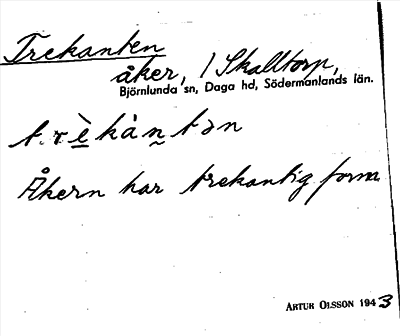 Trekanten
åker, 1 Skalltorp,
Björnlunda sn, Daga hd, Södermanlands län.
t.rè̲kàn̰tən
Åkern har trekantig form.
ARTUR OLSSON 1943